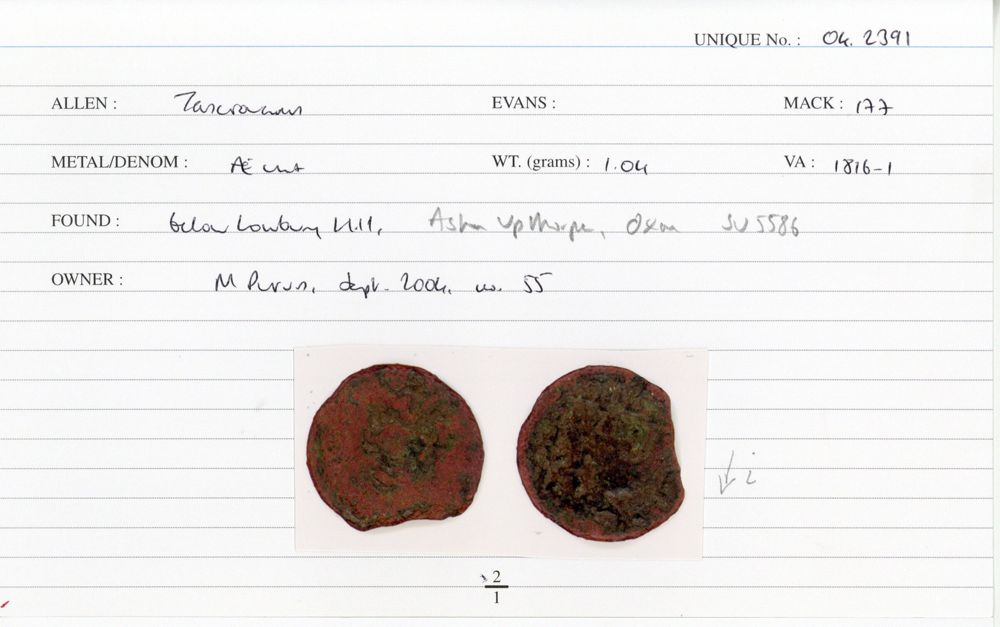 UNIQUE No. : 04. 2391
ALLEN : Tasciovanus EVANS : MACK : 177
METAL/DENOM : Æ unit WT. (grams) : 1.04 VA : 1816-1
FOUND : below Lowbury Hill, Aston Upthorpe, Oxon SU 5586
OWNER : M dept. 2004. no. 55
2
1